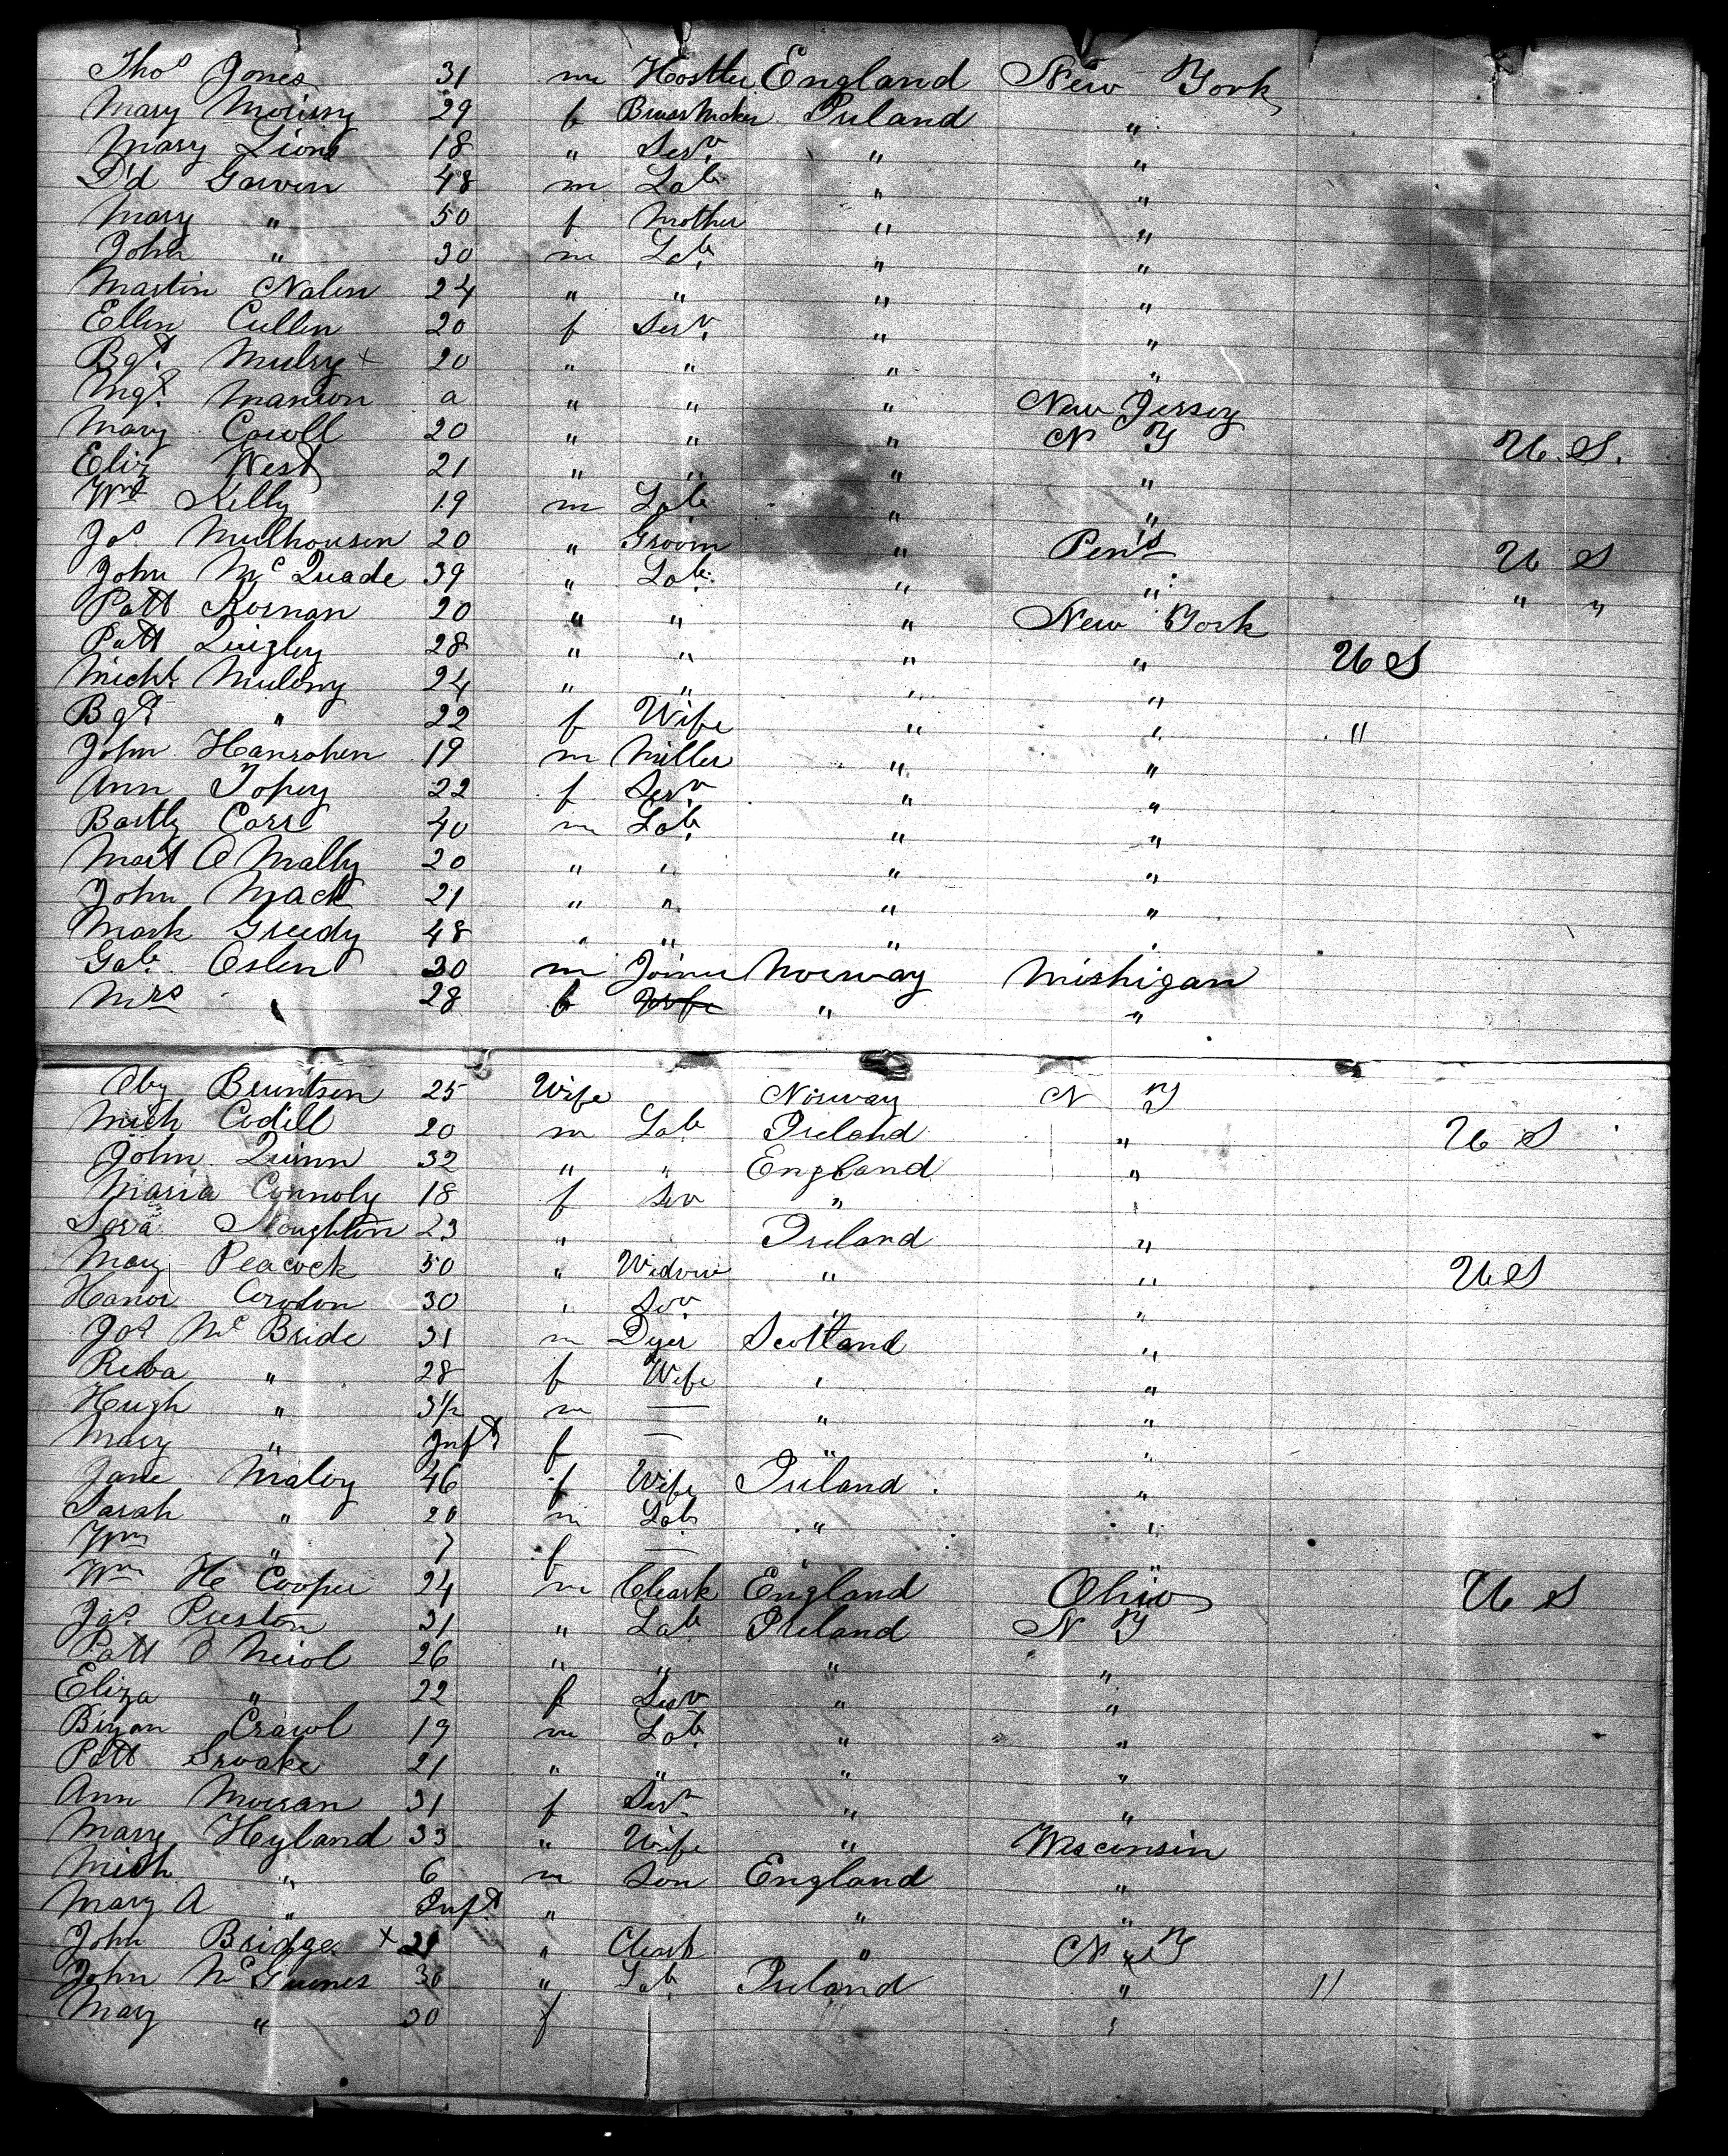 Thos Jones 31 m Hostler England New York
Mary Morisry 29 f Ireland "
Mary Lions 18 " Serv. " "
D'd Garven 48 m Lab. " "
Mary " 50 f Mother " "
John " 30 m Lab. " "
Martin Nalen 24 " " " "
Ellen Cullen 20 f Serv. " "
Bgt. Mulry + 20 " " " "
Mgt. Manson a " " " New Jersey
Mary Caroll 20 " " " N Y U.S.
Eliz West 21 " " " "
Wm Kelly 19 m Lab. " "
Jos. Mulhousen 20 " Groom " U S
John McQuade 39 " Lab. " " " "
Patt Kornan 20 " " " New York
Patt Quigley 28 " " " " U S
Michl. Mulony 24 " " " "
Bgt " 22 f Wife " " "
John Hansohen 19 m Miller " "
Ann Topey 22 f Serv " "
Bartly Carr 40 m Lab. " "
Mart O Mally 20 " " " "
John Mack 21 " " " "
Mark Greedy 48 " " " "
Gab. Oslen 30 m Joiner Norway Mishigan
Mrs " 28 f Wife " "
Oby Bruntsen 25 Wife Norway N Y
Mich Codill 20 m Lab Ireland " U S
John Quinn 32 " " England "
Maria Connoly 18 f Serv " "
Noughton 23 " Ireland "
Mary Peacock 50 " Widow " " U S
Hanor Corodon 30 " Serv " "
Jos McBride 31 m Dyer Scotland "
Reba " 28 f Wife " "
Hugh " 3½ m — " "
Mary " Inft. f — " "
Jane Maloy 46 f Wife Ireland "
Sarah " 20 m Lab. " "
Wm " 7 f — " "
Wm H Cooper 24 m Cleark England Ohio U S
Jas. Preston 31 " Lab Ireland N Y
Patt O Neiol 26 " " " "
Eliza " 22 f Serv " "
Bryan Crawl 19 m Lab. " "
Patt Sroake 21 " " " "
Ann Moran 31 f Serv " "
Mary Hyland 33 " Wife " Wesconsin
Mich " 6 m Son England "
Mary A " Inft " " "
John Bridge + 21 " Clerk " N Y
John McGuines 30 " Lab. Ireland " "
Mary " 30 f "